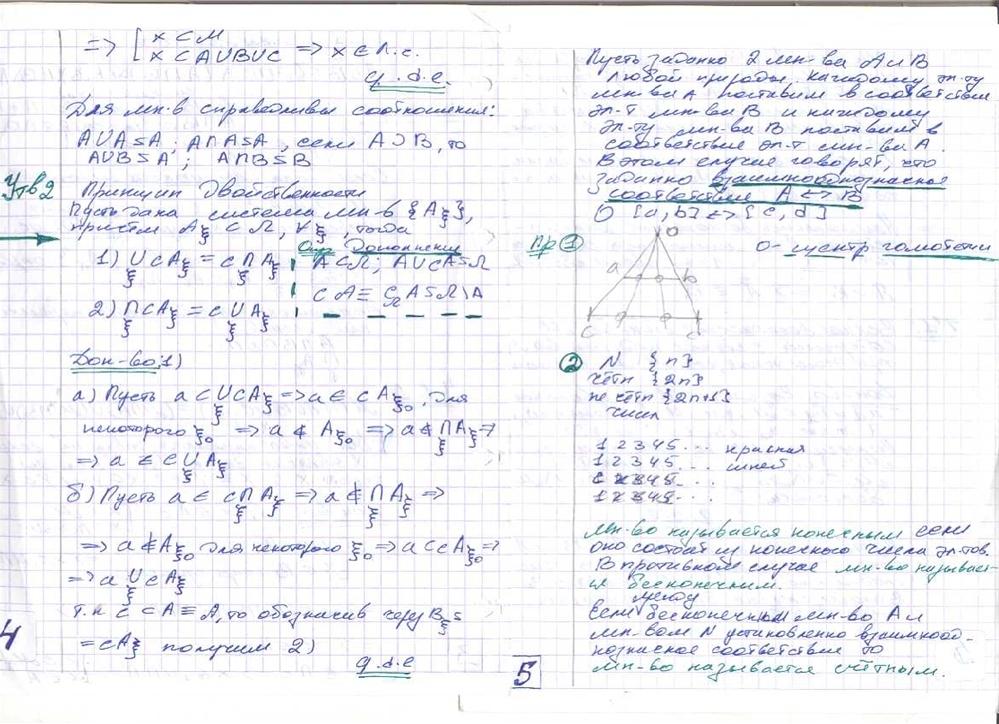 => [ x ⊂ M
x ⊂ A∪B∪C => x ∈ Л.с.
q.d.e.
Для мн-в справедливы соотношения:
A∪A≤A; A∩A≤A, если A⊃B, то
A∪B≤A; A∩B≤B
Утв 2
Принцип двойственности
Пусть дана система мн-в {Aξ},
причём Aξ ⊂ Ω, ∀ξ, тогда
Опр Дополнение
1) ∪ξ cAξ = c∩ξ Aξ
A⊂Ω; A∪cA≤Ω
cA ≡ C_Ω A ≤ Ω\A
2) ∩ξ cAξ = c∪ξ Aξ
Док-во: 1)
а) Пусть a ⊂ ∪ξ cAξ => a ∈ cAξ₀, для
некоторого ξ₀ => a ∉ Aξ₀ => a ∉ ∩ξ Aξ =>
=> a ∈ c∪ξ Aξ
б) Пусть a ∈ c∩ξ Aξ => a ∉ ∩ξ Aξ =>
=> a ∉ Aξ₀ для некоторого ξ₀ => a ⊂ cAξ₀ =>
=> a ∪ξ cAξ
т.к c cA ≡ A, то обозначив через Bξ ≤
= cAξ получим 2)
q.d.e
4
Пусть заданно 2 мн-ва A и B
любой природы, каждому эл-ту
мн-ва A поставим в соответствие
эл-т мн-ва B и каждому
эл-ту мн-ва B поставим в
соответствие эл-т мн-ва A.
В этом случае говорят, что
заданно взаимнооднозначное
соответствие A <-> B
1) [a,b] <-> [c,d]
Пр 1
O
O - центр гомотетии
a b
c d
2 N {n}
чётн {2n}
не чётн {2n+1}
чисел
1 2 3 4 5 ... красная
1 2 3 4 5 ... синей
1 2 3 4 5 ...
1 2 3 4 5 ...
Мн-во называется конечным если
оно состоит из конечного числа эл-тов.
В противном случае мн-во называет-
ся бесконечным.
между
Если бесконечным мн-во A и
мн-вом N установленно взаимноод-
нозначное соответствие то
мн-во называется счётным.
5